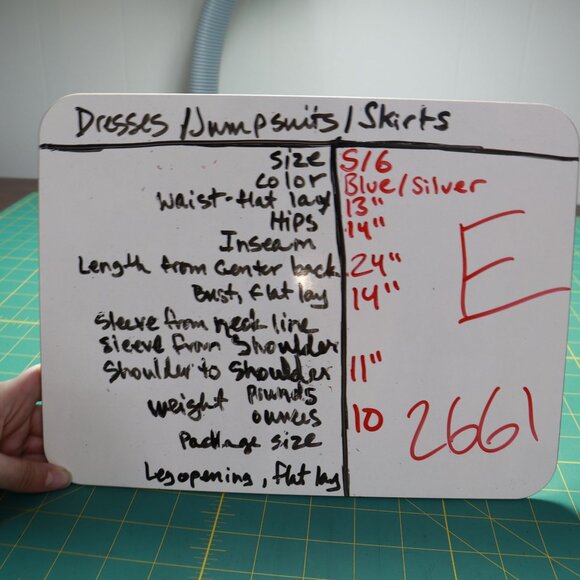 Dresses/Jumpsuits/Skirts
Size S/6
Color Blue/Silver
Waist-flat lay 13"
Hips 14"
Inseam
Length from Center back 24"
Bust, flat lay 14"
Sleeve from neck-line
Sleeve from Shoulder
Shoulder to Shoulder 11"
Pounds
Weight
ounces 10
Package size
Leg opening, flat lay
E
2661